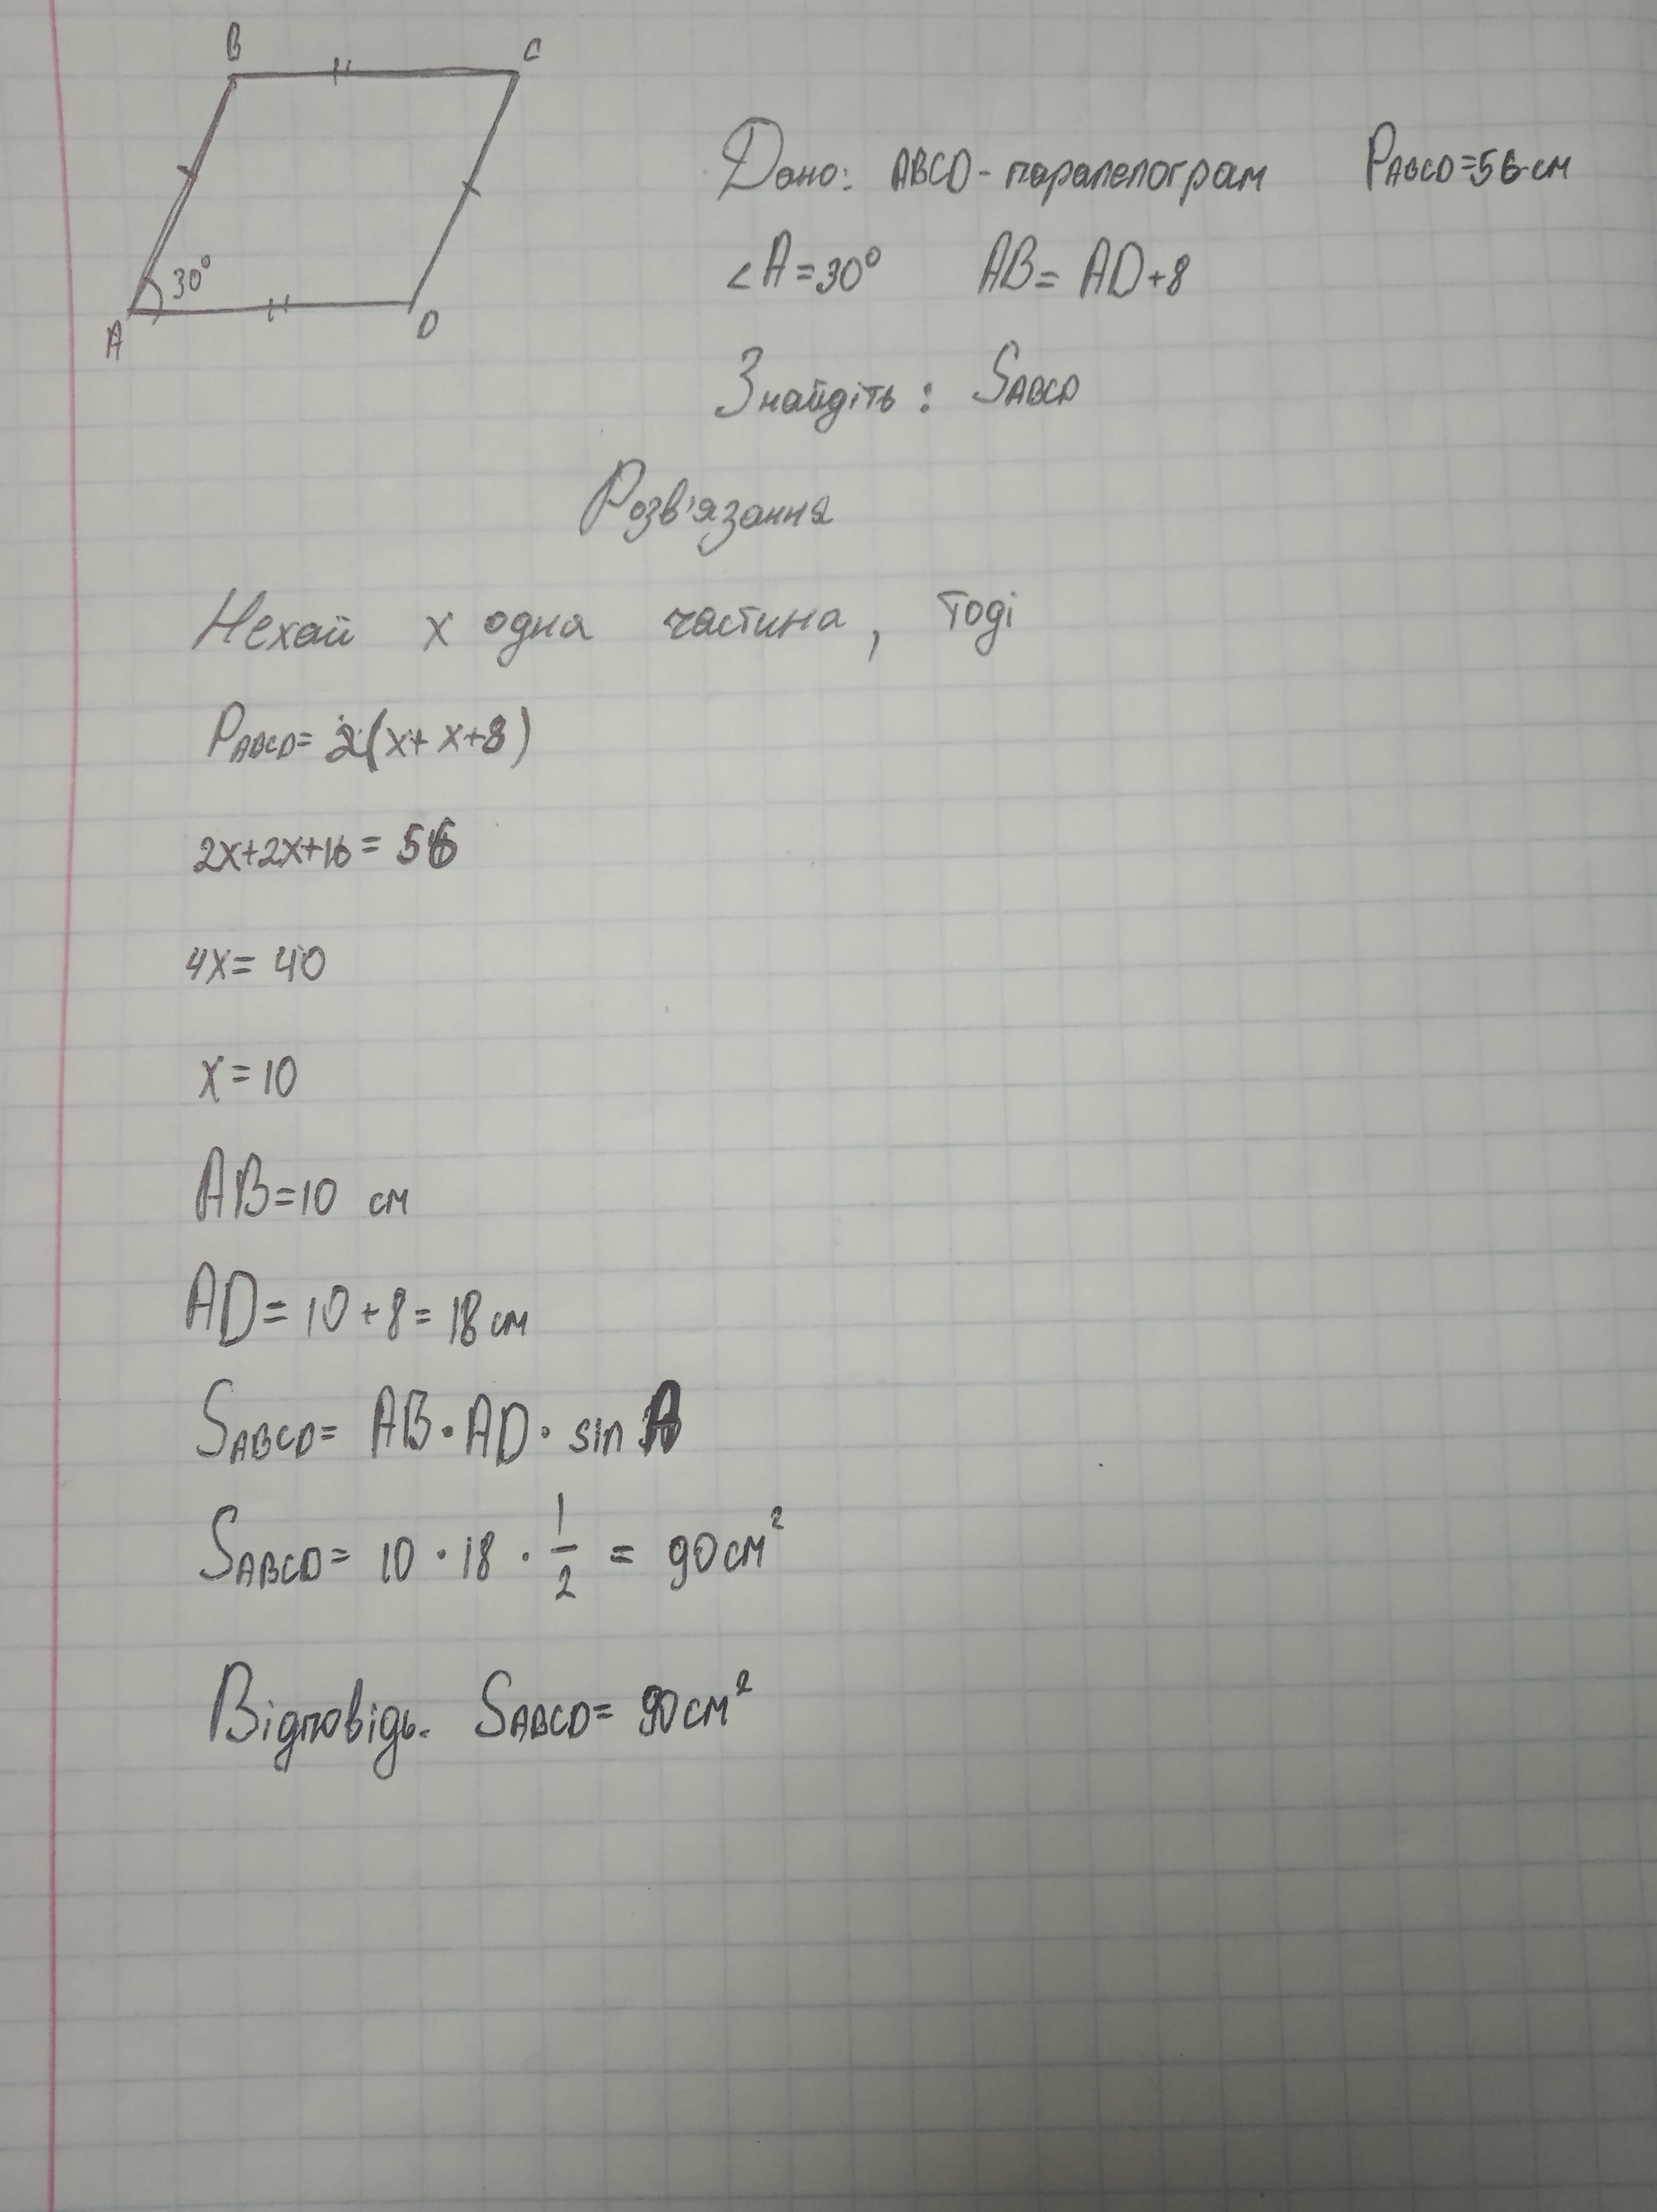 B C
30°
A D
Дано: ABCD - паралелограм P ABCD = 56 см
∠A = 30° AB = AD + 8
Знайдіть: S ABCD
Розв'язання
Нехай x одна частина, тоді
P ABCD = 2(x + x + 8)
2x + 2x + 16 = 56
4x = 40
x = 10
AB = 10 см
AD = 10 + 8 = 18 см
S ABCD = AB · AD · sin A
S ABCD = 10 · 18 · 1/2 = 90 см²
Відповідь. S ABCD = 90 см²